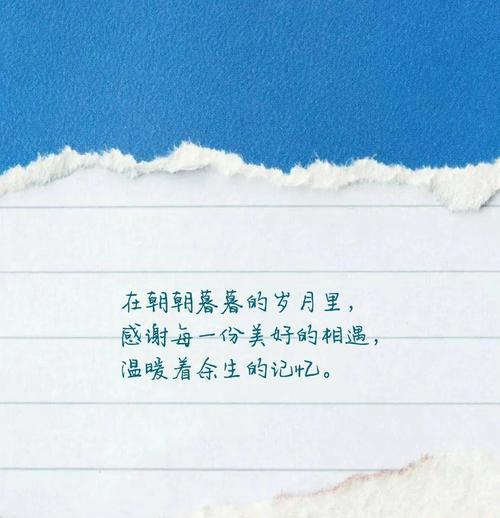 在朝朝暮暮的岁月里，
感谢每一份美好的相遇，
温暖着余生的记忆。